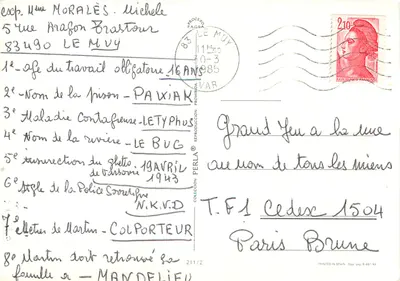 exp. Mme MORALÈS - Michele
5 rue Aragon Trastour
83490 LE MUY
1e - age du travail obligatoire 16 ANS
2e - Nom de la prison - PAWIAK
3e Maladie Contagieuse - LE TYPHUS
4e Nom de la rivière - LE BUG
5e insurrection du ghetto de Varsovie 19 AVRIL 1943
6e Sigle de la Police Sovietique
N.K.V.D
7e Métier de Martin - COLPORTEUR
8e Martin doit retrouvé sa
famille à - MANDELIEU
83 LE MUY
1985
VAR
2,10
Grand Jeu à la une
au nom de tous les miens
T.F1 Cedex 1504
Paris Brune